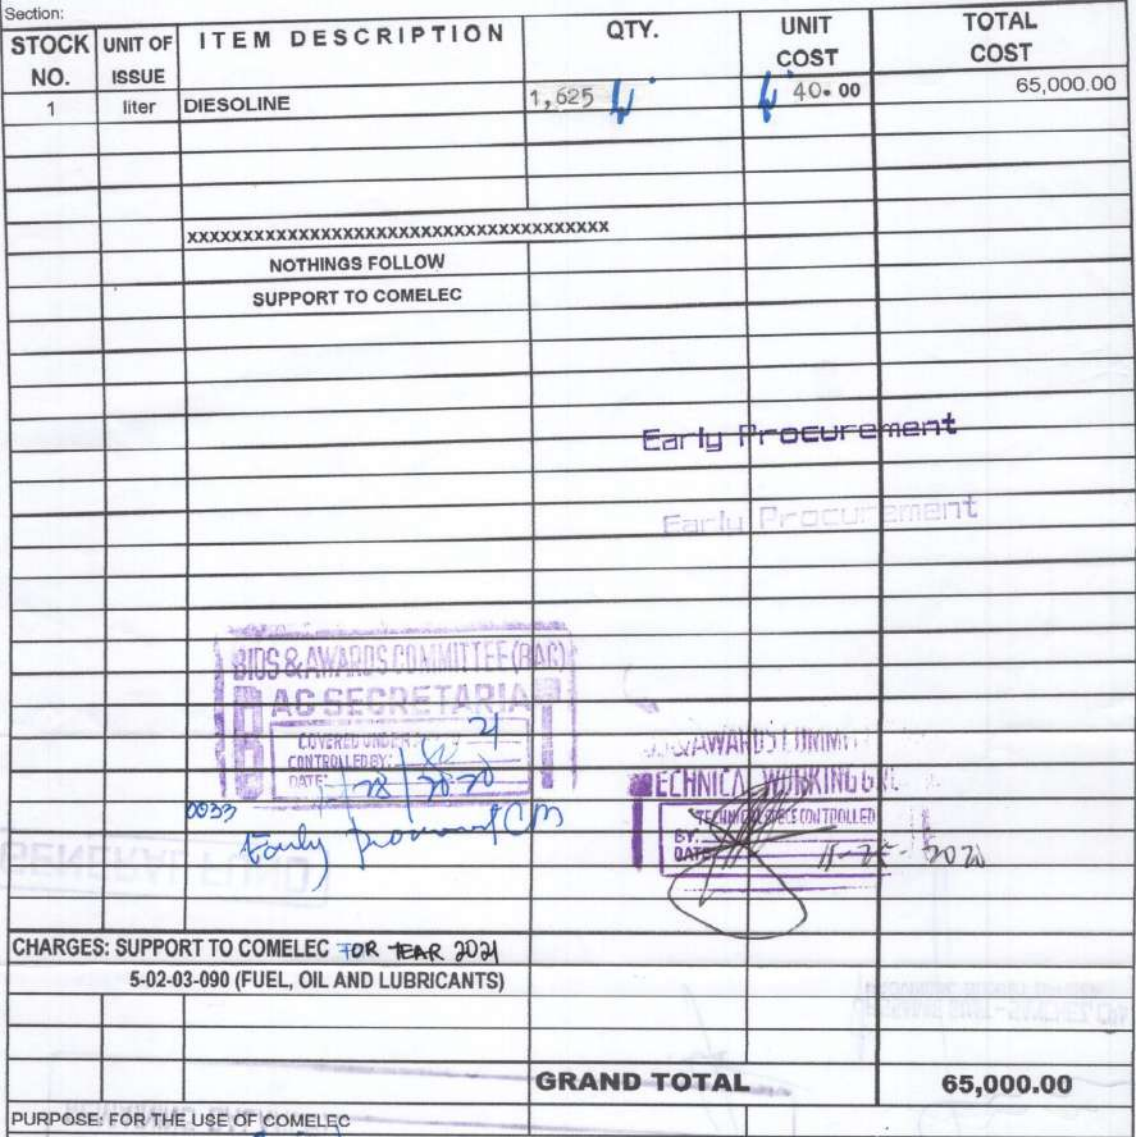 Section:
STOCK NO. UNIT OF ISSUE ITEM DESCRIPTION QTY. UNIT COST TOTAL COST
1 liter DIESOLINE 1,625 40.00 65,000.00
xxxxxxxxxxxxxxxxxxxxxxxxxxxxxxxxxxxxxx
NOTHINGS FOLLOW
SUPPORT TO COMELEC
Early Procurement
Early Procurement
BIDS & AWARDS COMMITTEE (BAC)
BAC SECRETARIA
COVERED UNDER 21
CONTROLLED BY:
DATE: 28 2020
0033
Early
TECHNICAL WORKING
CONTROLLED
BY:
DATE 2020
GENERAL FUND
CHARGES: SUPPORT TO COMELEC FOR YEAR 2021
5-02-03-090 (FUEL, OIL AND LUBRICANTS)
GRAND TOTAL 65,000.00
PURPOSE: FOR THE USE OF COMELEC